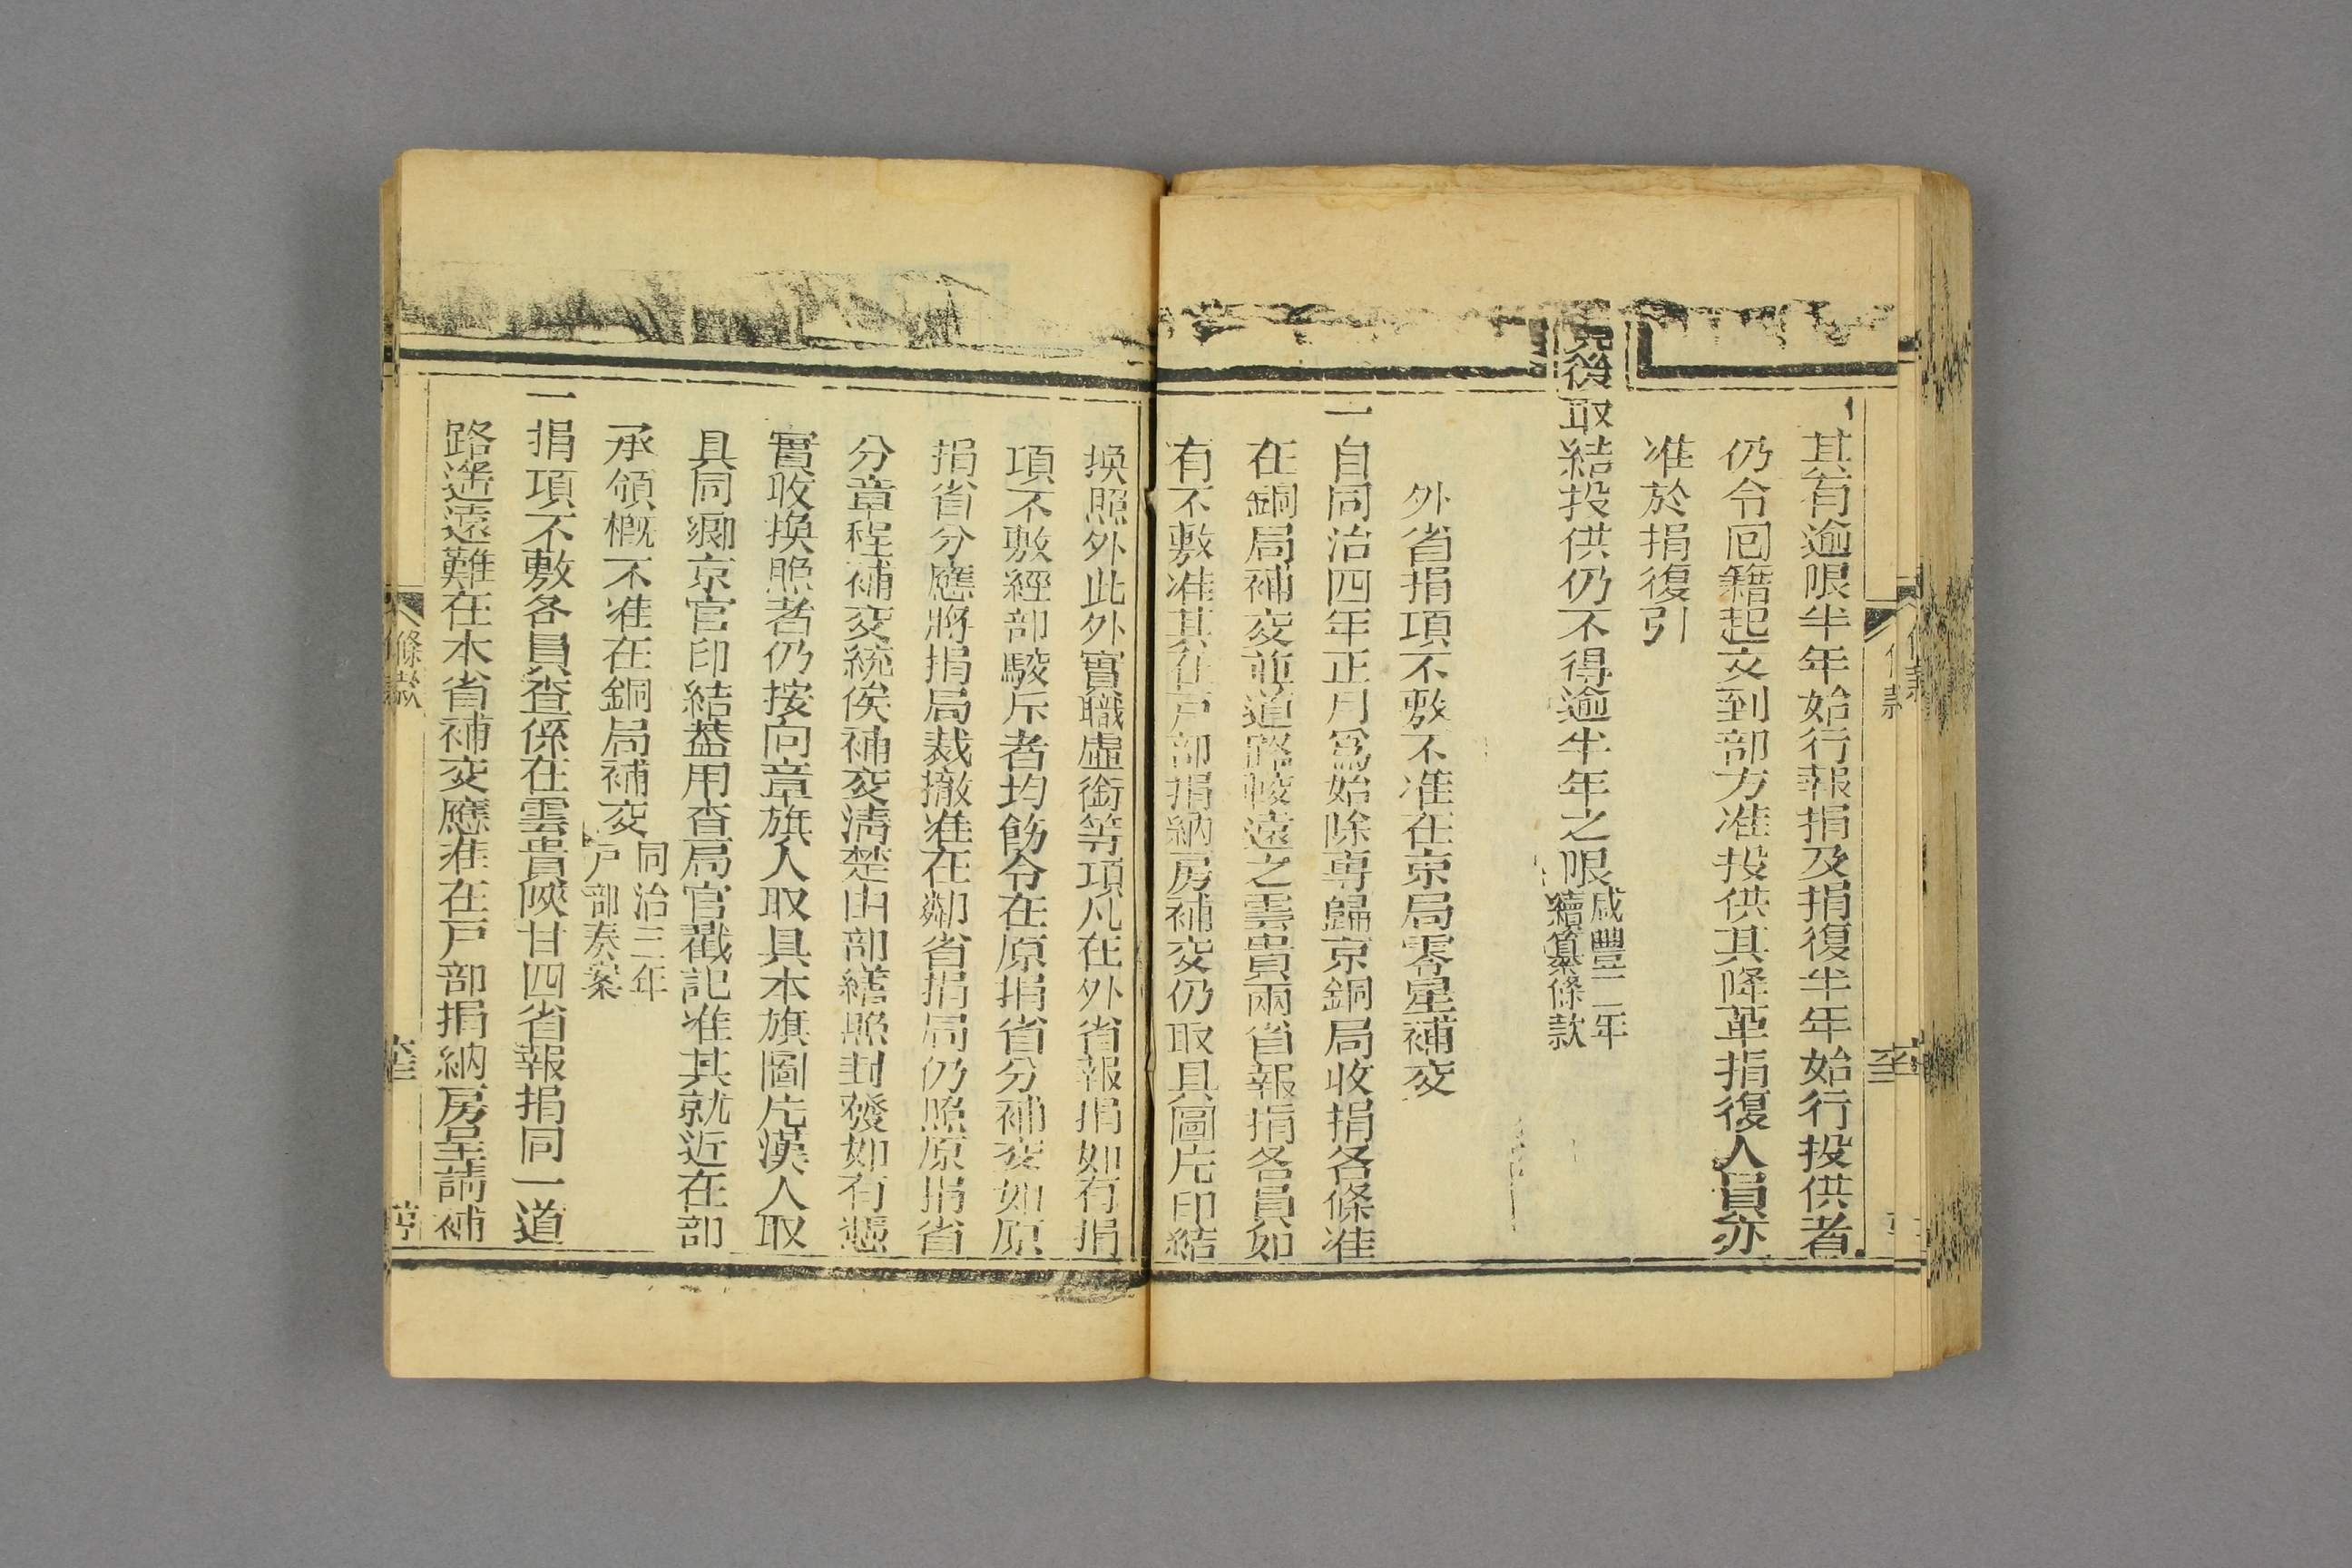 其有逾限半年始行報捐及捐復半年始行投供者
仍令回籍起文到部方准投供其降革捐復人員亦
准於捐復引
見後取結投供仍不得逾半年之限
咸豐二年
續纂條款
外省捐項不敷不准在京局零星補交
一自同治四年正月爲始除專歸京銅局收捐各條准
在銅局補交並道路較遠之雲貴兩省報捐各員如
有不敷准其在戶部捐納房補交仍取具圖片印結
換照外此外實職虛銜等項凡在外省報捐如有捐
項不敷經部駮斥者均飭令在原捐省分補交如原
捐省分應將捐局裁撤准在鄰省捐局仍照原捐省
分章程補交統俟補交清楚由部繕照封發如有憑
實收換照者仍按向章旗人取具本旗圖片漢人取
具同鄉京官印結葢用查局官戳記准其就近在部
承領概不准在銅局補交
同治三年
戶部奏案
一捐項不敷各員查係在雲貴陝甘四省報捐同一道
路遙遠難在本省補交應准在戶部捐納房呈請補
條款